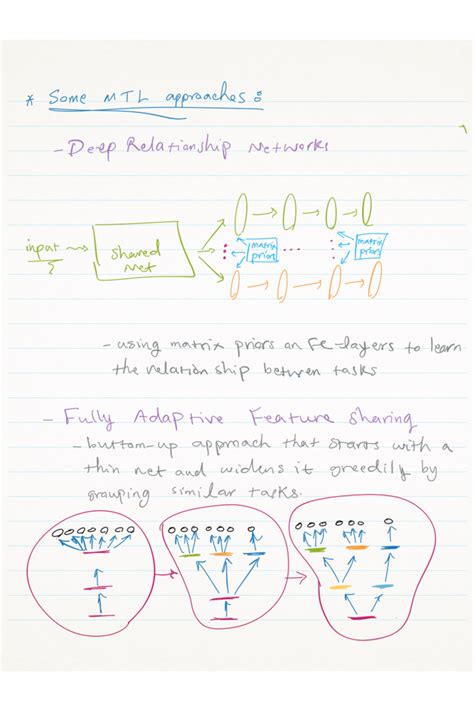 * Some MTL approaches :
- Deep Relationship Networks
input
shared
net
matrix
priors
matrix
priors
- using matrix priors on FC-layers to learn
the relationship between tasks
- Fully Adaptive Feature Sharing
- buttom-up approach that starts with a
thin net and widens it greedily by
grouping similar tasks.